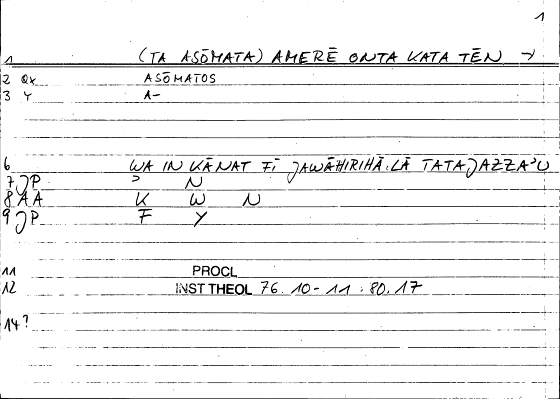 1
1 (TA ASŌMATA) AMERĒ ONTA KATA TĒN →
2 QX ASŌMATOS
3 Y A-
6 WA IN KĀNAT FĪ JAWĀHIRIHĀ. LĀ TATAJAZZA'U
7 JP ' N
8 AA K W N
9 JP F Y
11 PROCL
12 INST THEOL 76. 10-11 : 80. 17
14 ?